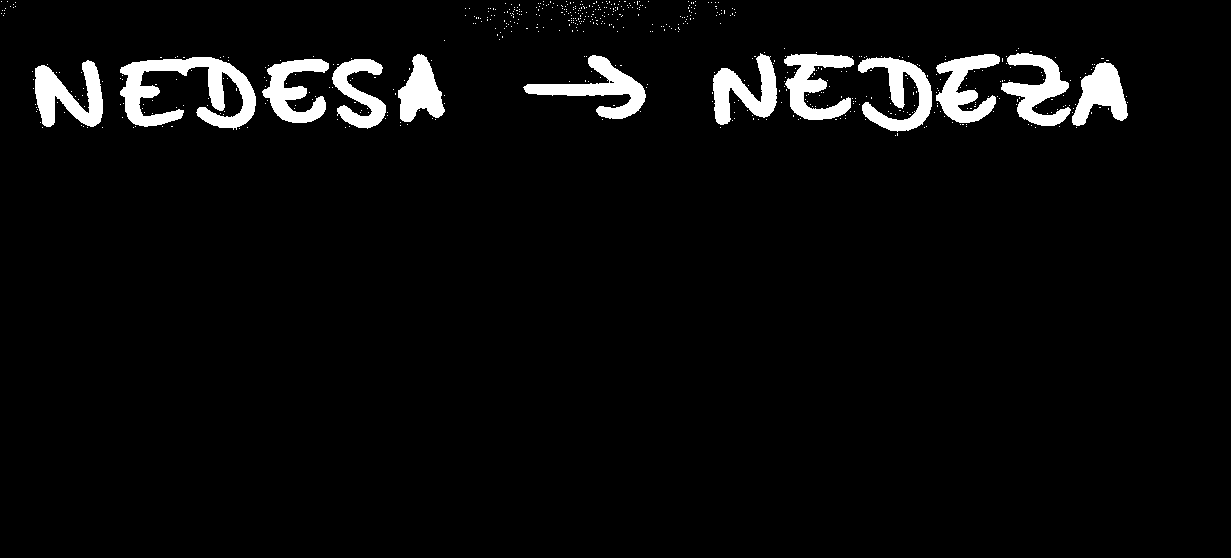 NEDESA → NEDEZA